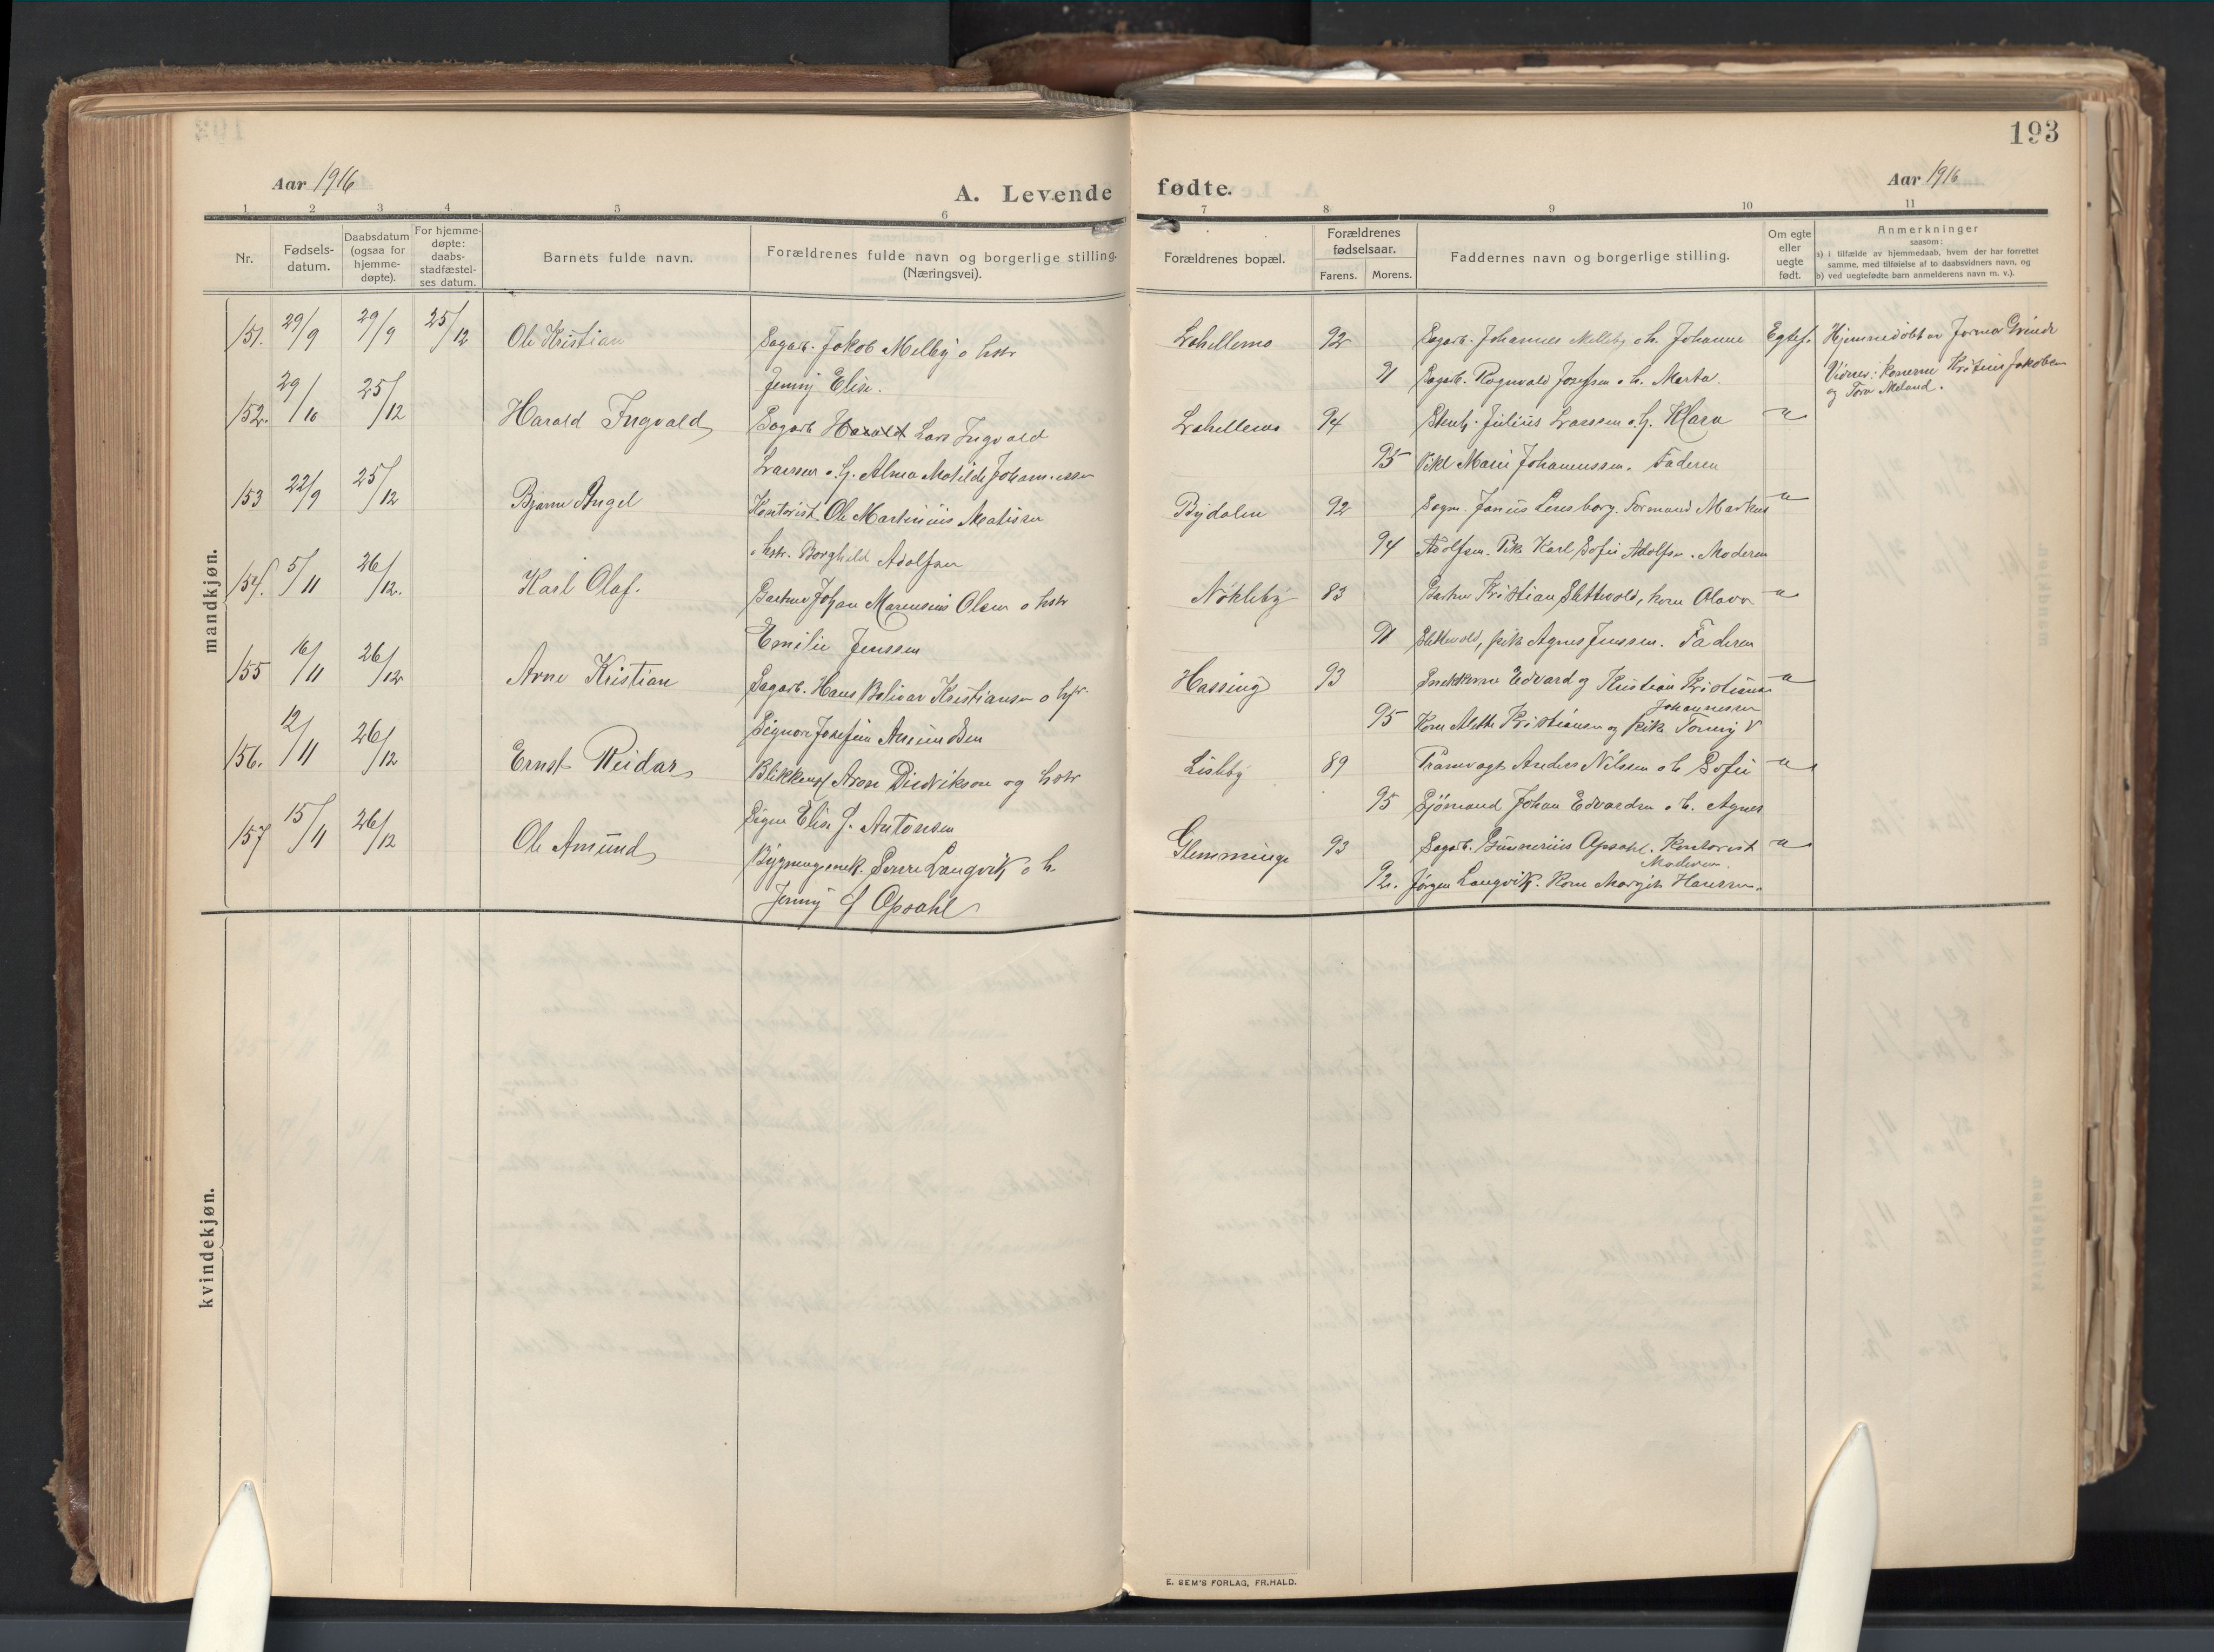 193
Aar 1916
A. Levende fødte.
Aar 1916
1 2 3 4 5 6 7 8 9 10 11
Nr.
Fødsels-
datum.
Daabsdatum
(ogsaa for
hjemme-
døpte).
For hjemme-
døpte:
daabs-
stadfæstel-
ses datum.
Barnets fulde navn.
Forældrenes fulde navn og borgerlige stilling.
(Næringsvei).
Forældrenes bopæl.
Forældrenes
fødselsaar.
Farens. Morens.
Faddernes navn og borgerlige stilling.
Om egte
eller
uegte
født.
Anmerkninger
saasom:
a) i tilfælde av hjemmedaab, hvem der har forrettet
samme, med tilføielse af to daabsvidners navn, og
b) ved uegtefødte barn anmelderens navn m. v.).
mandkjøn.
151. 29/9 29/9 25/12 Ole Kristian Sagarb. Jakob Melby o hstr Lahellemo 92 Sagarb. Johannes Melleby o h. Johanne Egtef. Hjemmedøbt av Jormor
Jenny Elise. 91 Sagarb. Ragnvald Josefsen o h. Marta. Vidner: konerne Kristine Jakobsen
og Tora Meland.
152. 29/10 25/12 Harald Ingvald Sagarb Harald Lars Ingvald Lahellemo 94 Julius Larssen o h. Klara -"-
Larssen o h. Alma Matilde Johannessen 95 Pike Marie Johannessen. Faderen
153 22/9 25/12 Bjarne Angel Kontorist Ole Martinius Matisen Bydalen 92 Sagm. Janus Formand Markus -"-
o hstr. Borghild Adolfsen 94 Adolfsen. Pike Karl Sofie Adolfsen. Moderen
154. 5/11 26/12. Karl Olaf. Gartner Johan Marensius Olsen o hstr Nøkleby 83 Gartner Kristian Slettevold, kone Olava -"-
Emilie Jenssen 91 Slettevold, pike Agnes Jenssen. Faderen
155 16/11 26/12 Arne Kristian Sagarb. Hans Bolivar Kristiansen o hstr Hassing 93 Snekkerne Edvard og Kristian Kristiansen -"-
Signora Josefine Amundsen 95 Kone Alette Kristiansen og pike Tonny Johannessen
156. 12/11 26/12 Ernst Reidar Blikkensl Aron Diedrikson og hstr Lisleby 89 Anders Nilssen o h. Sofie -"-
Signe Elise J. Antonsen 95 Sjømand Johan Edvardsen o h. Agnes
157 15/11 26/12 Ole Amund Bygningssnek. Sverre Langvik o h. Glemminge 93 Sagarb. Gunnerius Opsahl. Kontorist -"-
Jenny f Opsahl 92. Jørgen Langvik. Kone Margit Hansen. Moderen.
kvindekjøn.
E. SEM'S FORLAG, FR.HALD.